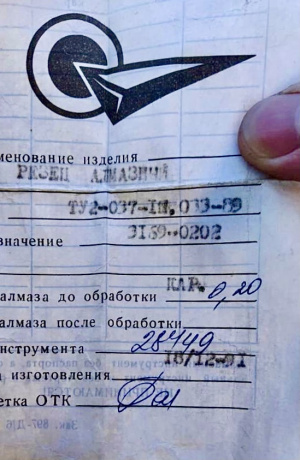 менование изделия
РЕЗЕЦ АЛМАЗНЫЙ
ТУ2-037-1М,033-89
значение 3139-0202
алмаза до обработки КАР. 0,20
алмаза после обработки
нструмента 28449
изготовления 18/12-91
етка ОТК
Зак. 897-Д/6